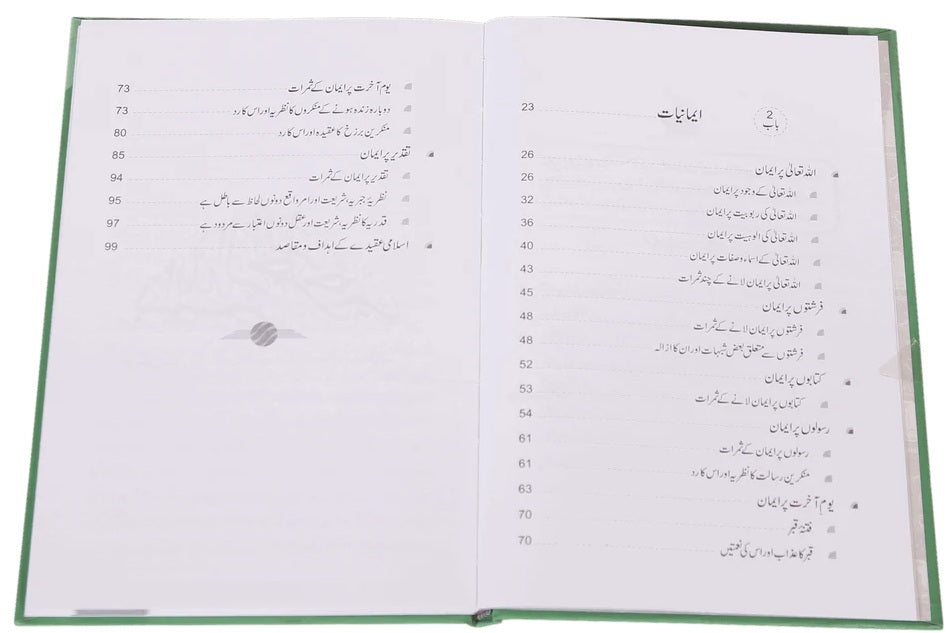 باب 2 ایمانیات 23
اللہ تعالیٰ پر ایمان 26
اللہ تعالیٰ کے وجود پر ایمان 26
اللہ تعالیٰ کی ربوبیت پر ایمان 32
اللہ تعالیٰ کی الوہیت پر ایمان 36
اللہ تعالیٰ کے اسماء وصفات پر ایمان 40
اللہ تعالیٰ پر ایمان لانے کے چند ثمرات 43
فرشتوں پر ایمان 45
فرشتوں پر ایمان لانے کے ثمرات 48
فرشتوں سے متعلق بعض شبہات اور ان کا ازالہ 48
کتابوں پر ایمان 52
کتابوں پر ایمان لانے کے ثمرات 53
رسولوں پر ایمان 54
رسولوں پر ایمان کے ثمرات 61
منکرین رسالت کا نظریہ اور اس کا رد 61
یوم آخرت پر ایمان 63
فتنۂ قبر 70
قبر کا عذاب اور اس کی نعمتیں 70
یوم آخرت پر ایمان کے ثمرات 73
دوبارہ زندہ ہونے کے منکروں کا نظریہ اور اس کا رد 73
منکرین برزخ کا عقیدہ اور اس کا رد 80
تقدیر پر ایمان 85
تقدیر پر ایمان کے ثمرات 94
نظریۂ جبریہ، شریعت اور امر واقع دونوں لحاظ سے باطل ہے 95
قدریہ کا نظریہ، شریعت اور عقل دونوں اعتبار سے مردود ہے 97
اسلامی عقیدے کے اہداف و مقاصد 99